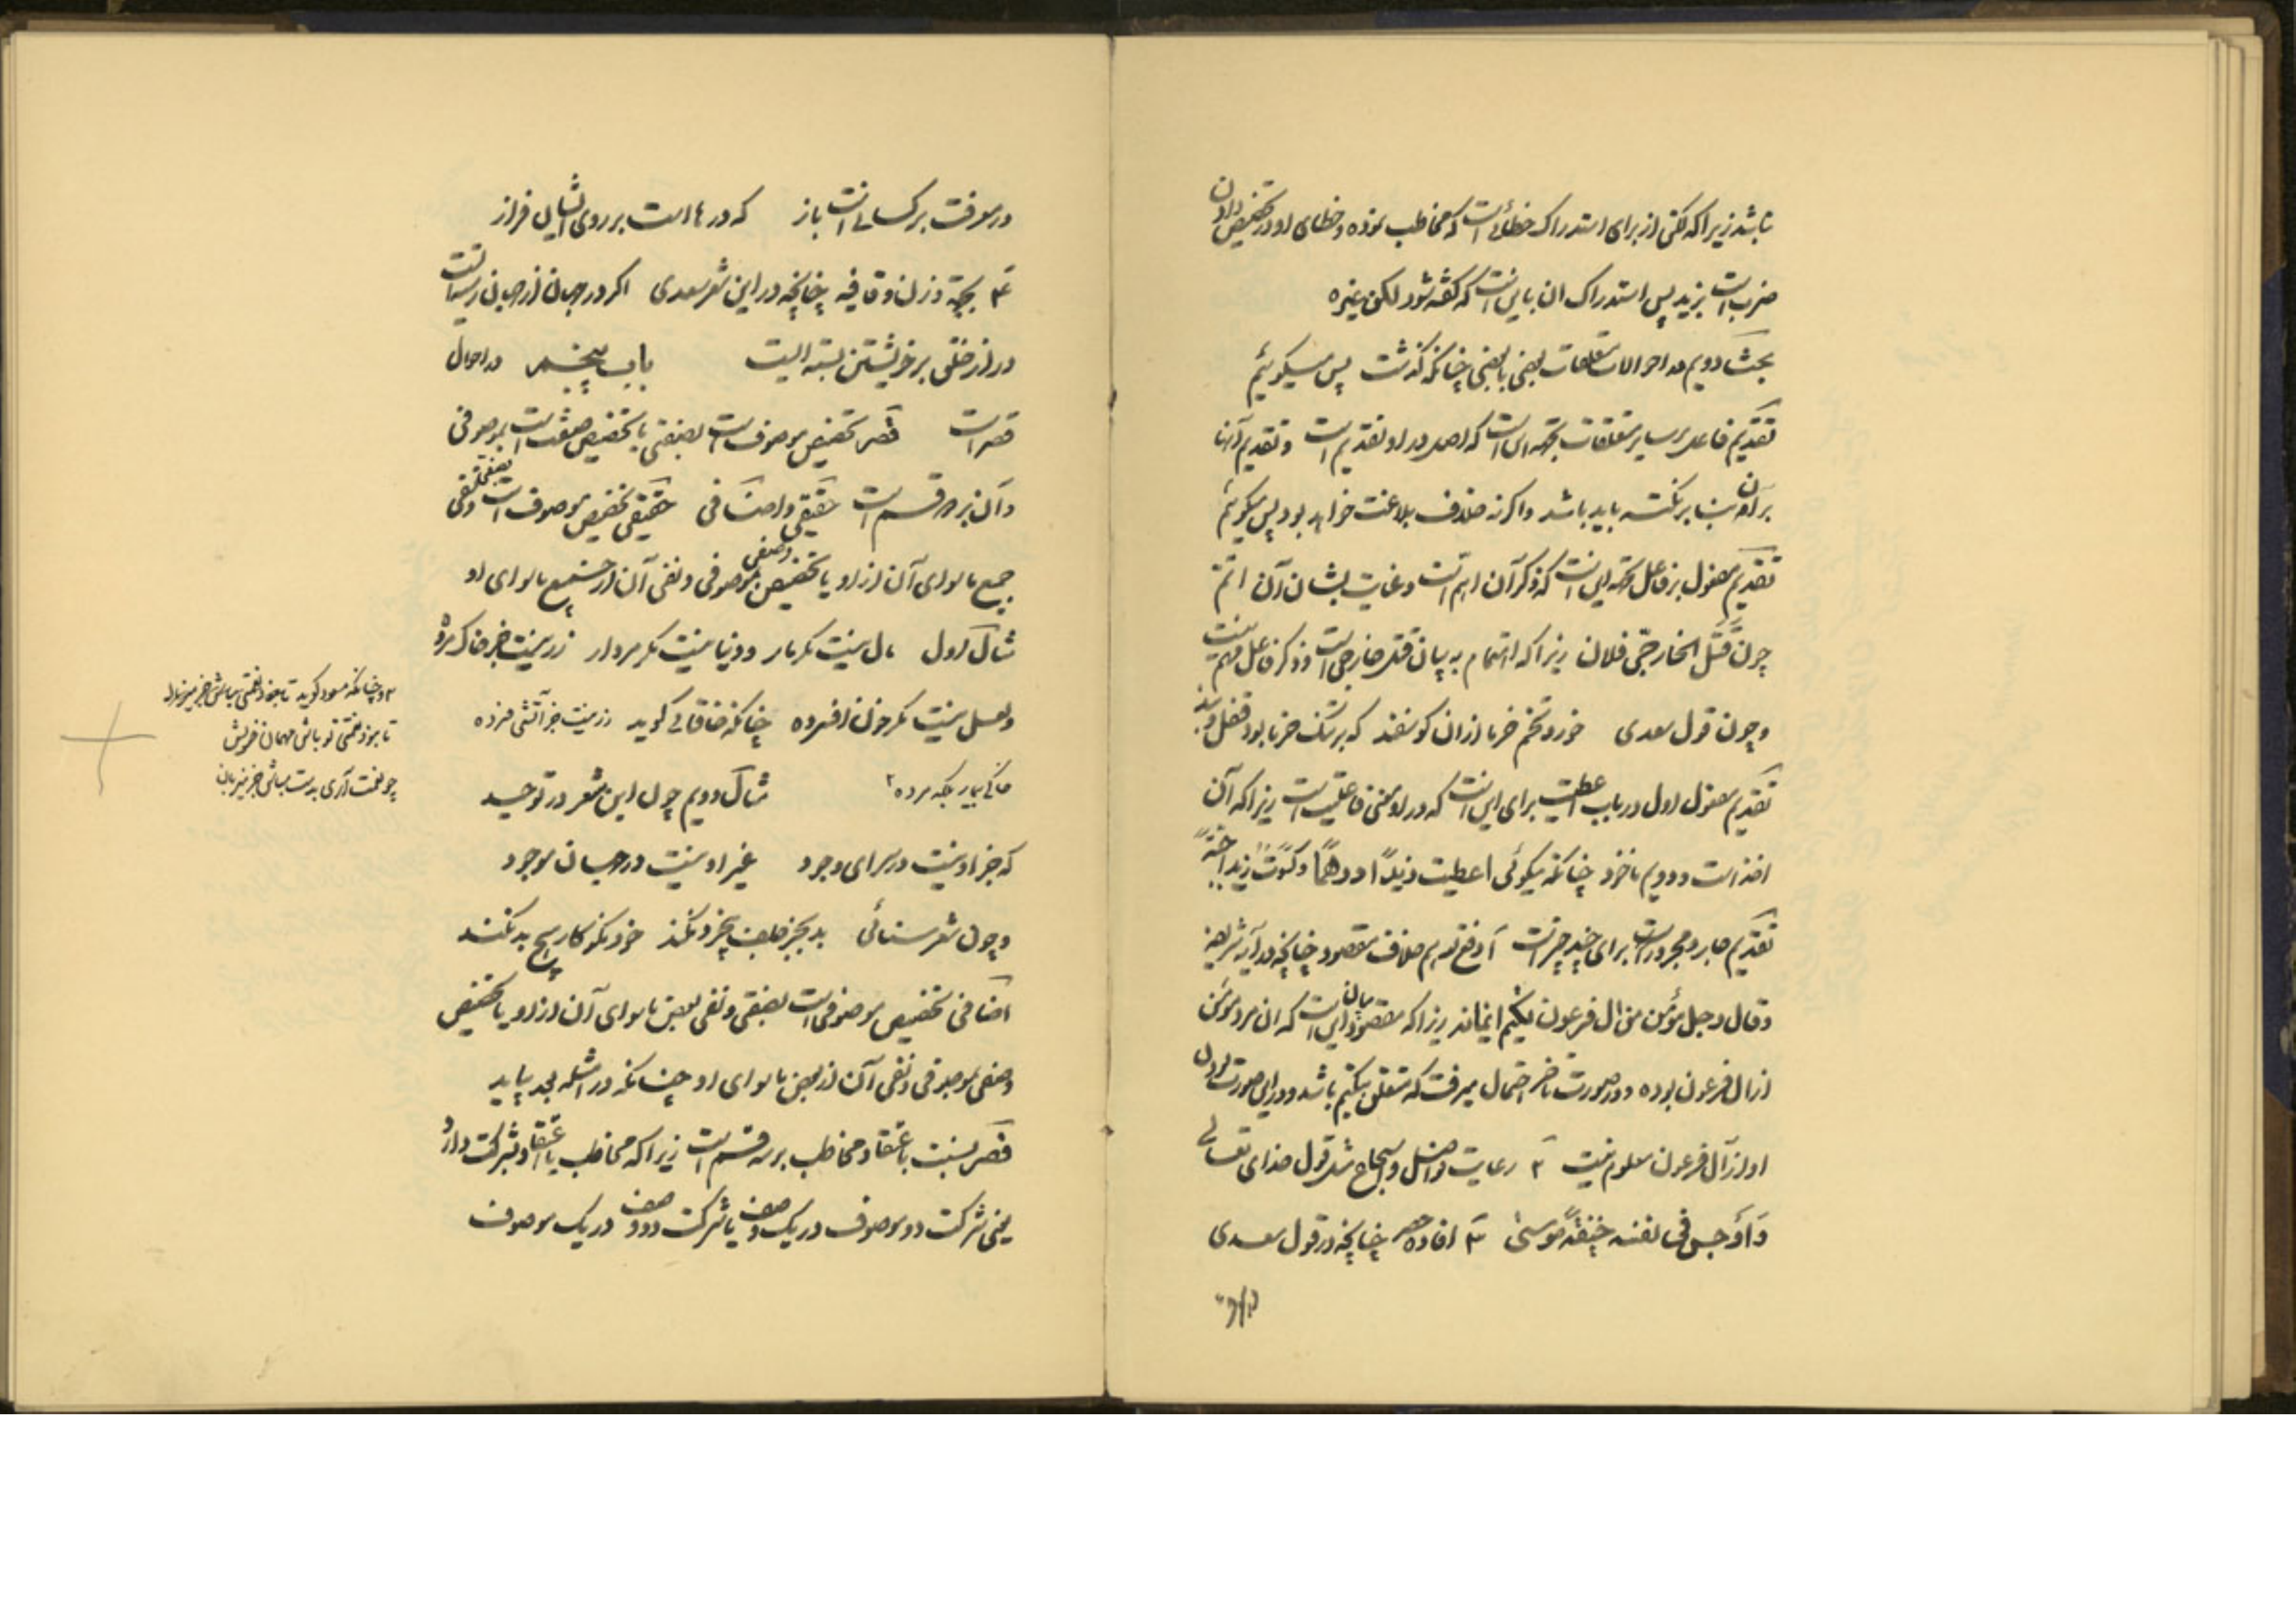 باشد زیرا که لکن از برای استدراک خطائی است که مخاطب نموده و خطای او در تخصیص دادن
ضرب است بزید پس استدراک ان باین است که گفته شود لکن غیره
بحث دویم در احوالات متعلقات بعضی با بعضی چنانکه گذشت پس میگوئیم
تقدیم فاعل بر سایر متعلقات بجهة این است که اصل در او تقدیم است و تقدیم آنها
بر آن بنا بر نکته باید باشد و اگر نه خلاف بلاغت خواهد بود پس میگوئیم
تقدیم مفعول بر فاعل بجهة این است که ذکر آن اهم است و عنایت بشان آن اتم
چون قَتَلَ الخارجیَّ فلان زیرا که اهتمام به بیان قتل خارجی است و ذکر فاعل مهم نیست
و چون قول سعدی خورد تخم خرما ازان گوسفند که بر تنگ خرما بود قفل و بند
تقدیم مفعول اول در باب اعطیت برای این است که در او معنی فاعلیت است زیرا که آن
اخذ است و دویم ماخوذ چنانکه میگوئی اعطیت زیدًا درهمًا و کسوت زیدًا جبّةً
تقدیم جار و مجرور است برای چند چیز است آ دفع توهم خلاف مقصود چنانچه در آیه شریفه
و قال رجل مؤمن من ال فرعون یکتم ایمانه زیرا که مقصود بیان این است که ان مرد مؤمن
از ال فرعون بوده و در صورت تاخر احتمال میرفت که متعلق بیکتم باشد و در این صورت بودن
او از آل فرعون معلوم نیست ۲ رعایت فواصل و اسجاع مثل قول خدای تعالی
وَاَوجس فی نفسه خیفةً موسیٰ ۳ افاده حصر چنانچه در قول سعدی
در معرفت بر کسانی است باز که درهاست بر روی ایشان فراز
۴ بجهة وزن و قافیه چنانچه در این شعر سعدی اگر در جهان از جهان رسته ایست
در از خلق بر خویشتن بسته ایست باب پنجم در احوال
قصر است قصر تخصیص موصوف است بصفتی یا تخصیص صفت است بموصوفی
و آن بر دو قسم است حقیقی و اضافی حقیقی تخصیص موصوف است بصفتی و نفی
جمیع ماسوای آن از او یا تخصیص وصفی بموصوفی و نفی آن از جمیع ماسوای او
مثال اول مال نیست مگر مار و دنیا نیست مگر مردار زر نیست جز خاک زرد
و لعل نیست مگر خون افسرده چنانکه خاقانی گوید زر نیست جز آتشی فسرده
خاکی بیمار بلکه مرده ۲ مثال دویم چون این شعر در توحید
که جز او نیست در سرای وجود غیر او نیست در جهان موجود
و چون شعر سنائی بد بجز جلف بیخرد نکند خود نکوکار هیچ بد نکند
اضافی تخصیص موصوفی است بصفتی و نفی بعض ماسوای آن از او یا تخصیص
وصفی بموصوفی و نفی آن از بعض ماسوای او چنانکه در امثله بعد بیاید
قصر بنسبت باعتقاد مخاطب بر سه قسم است زیرا که مخاطب یا اعتقاد بشرکت دارد
یعنی شرکت دو موصوف در یک وصف یا شرکت دو وصف در یک موصوف
۲ و چنانکه مسعود گوید
تو باش مهمان خویش
چو نعمت آری بدست مباش جز میزبان